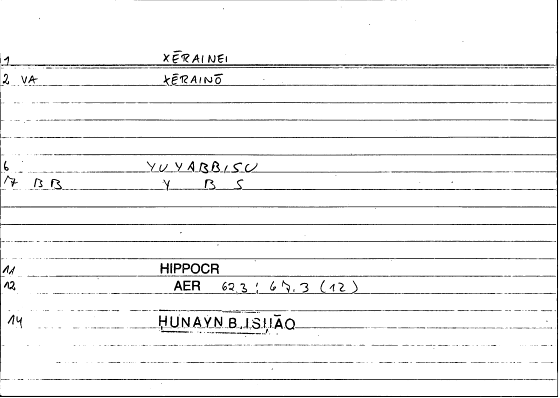 1 XĒRAINEI
2 VA XĒRAINŌ
6 YUYABBISU
17 BB Y B S
11 HIPPOCR
12 AER 62.3 : 67.3 (12)
14 ḤUNAYN B. ISḤĀQ